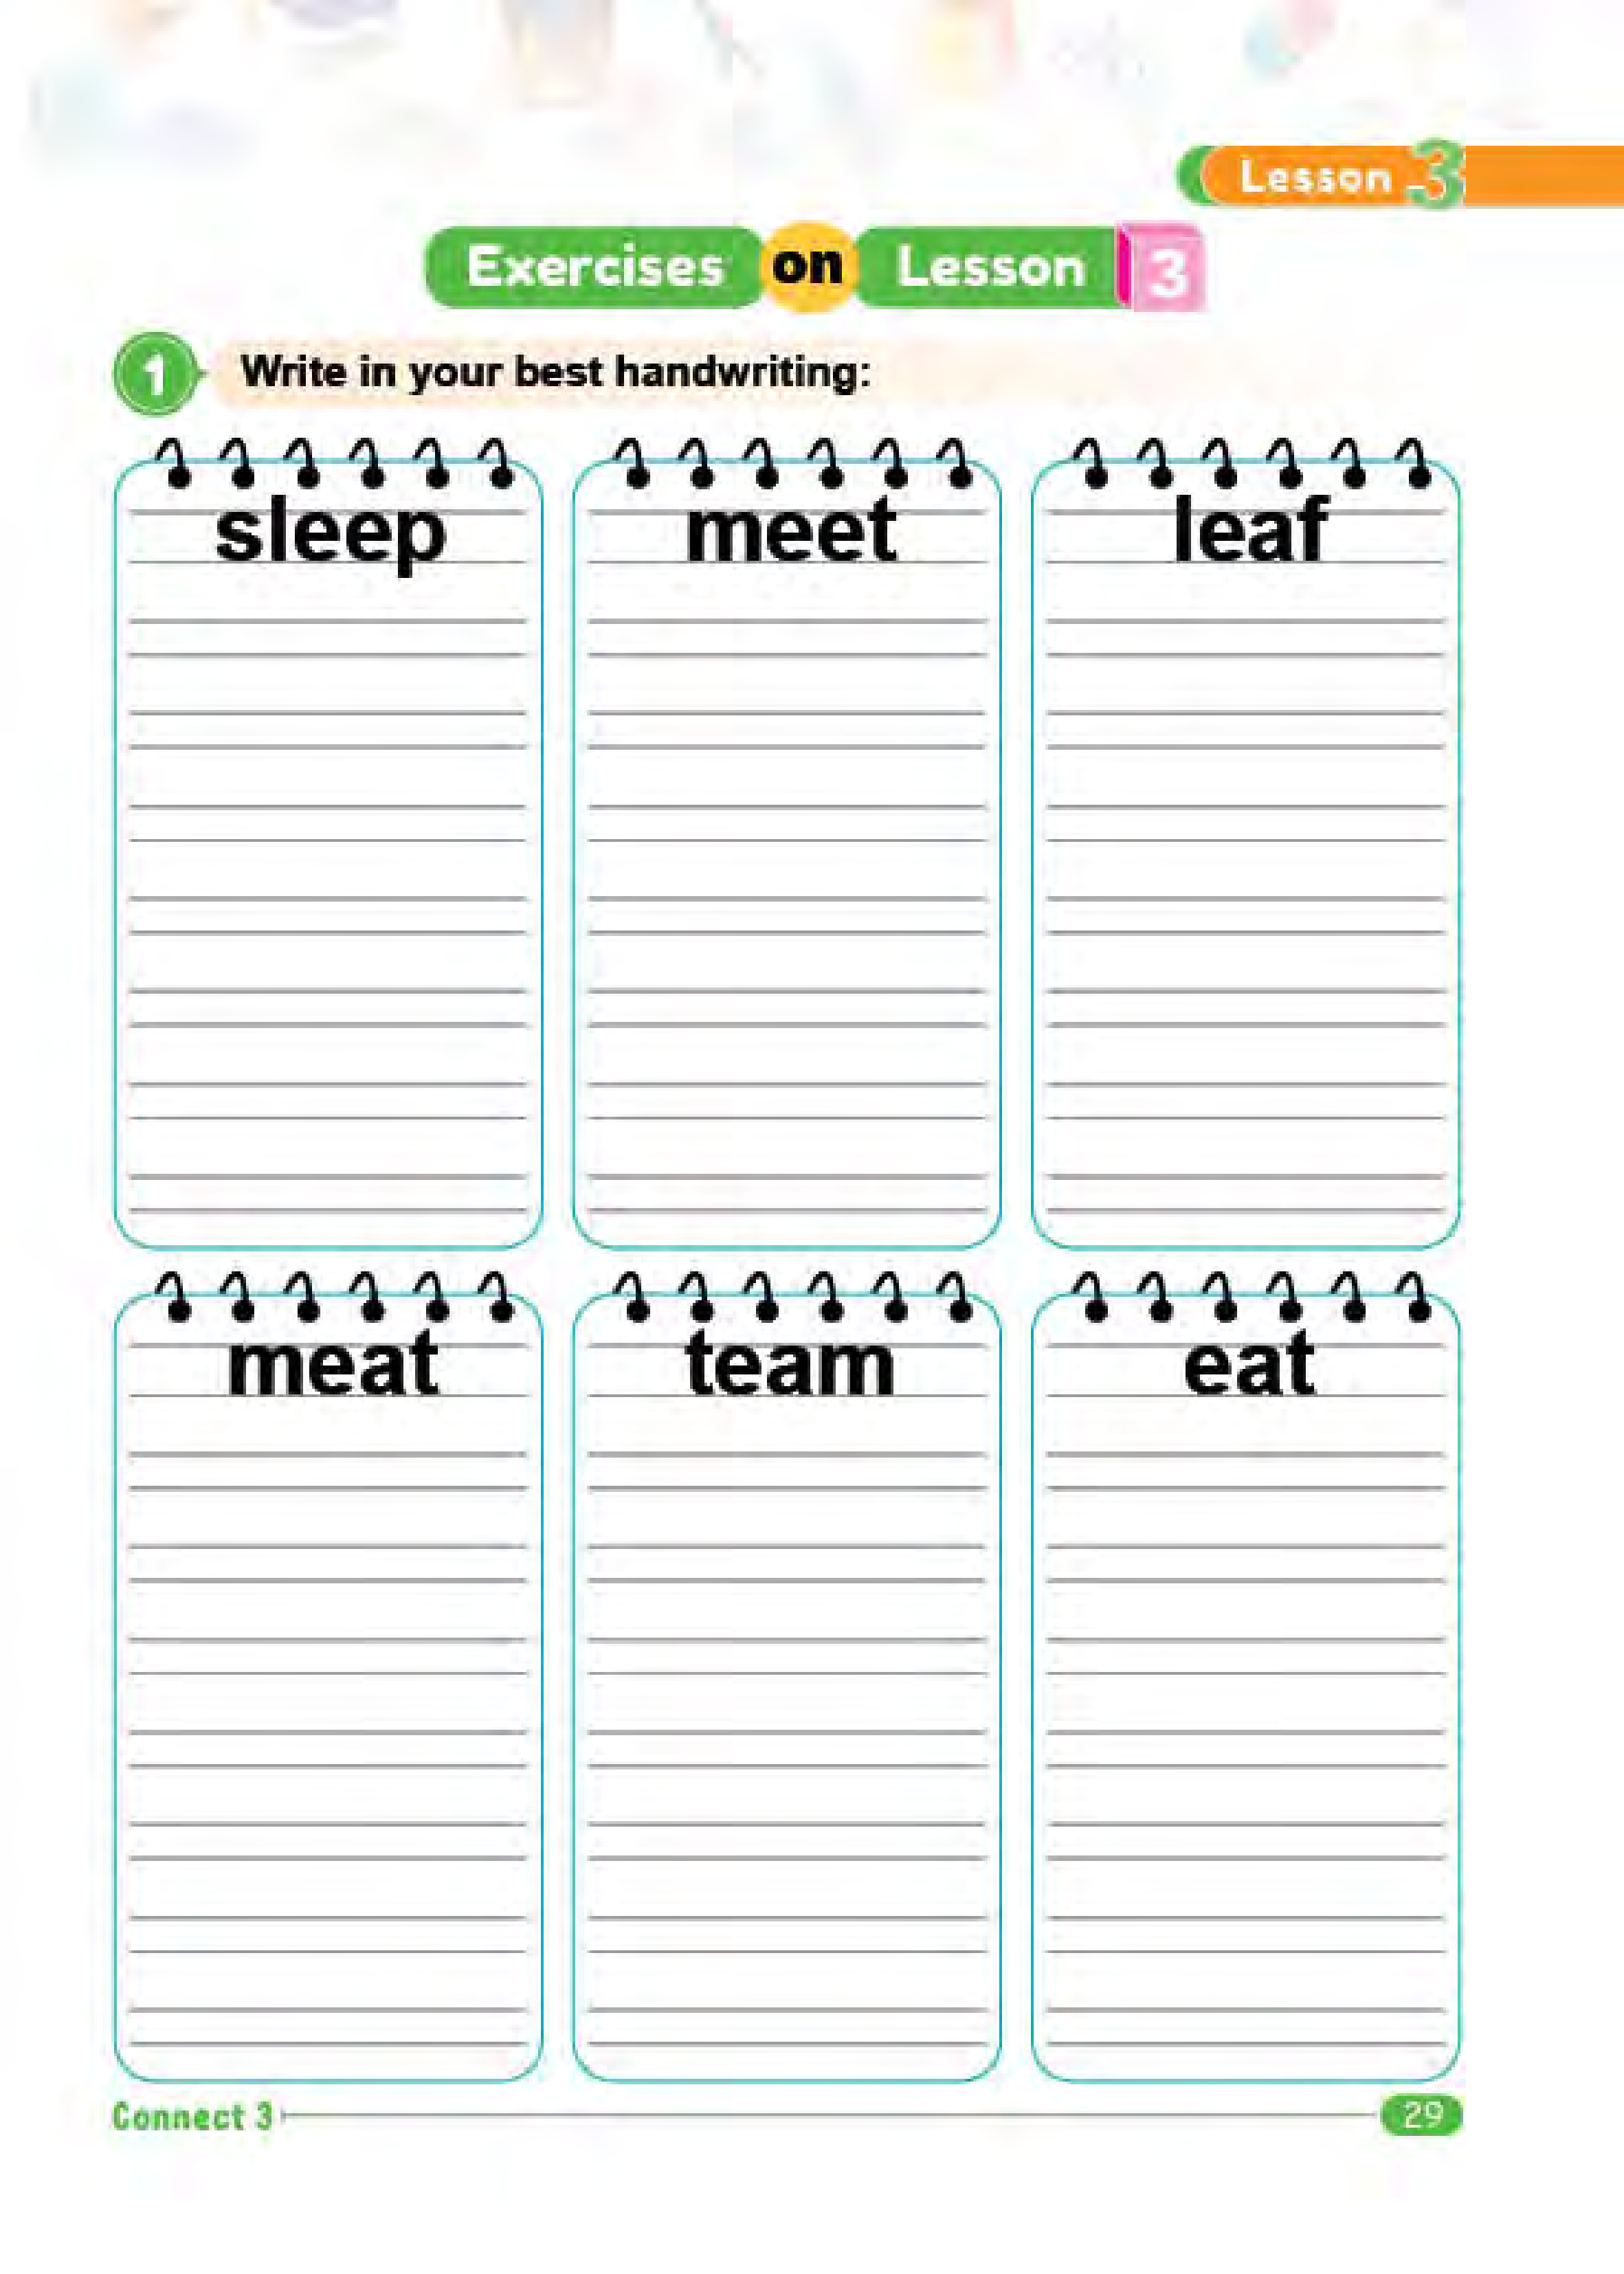 Lesson 3
Exercises on Lesson 3
1 Write in your best handwriting:
sleep meet leaf
meat team eat
Connect 3 29